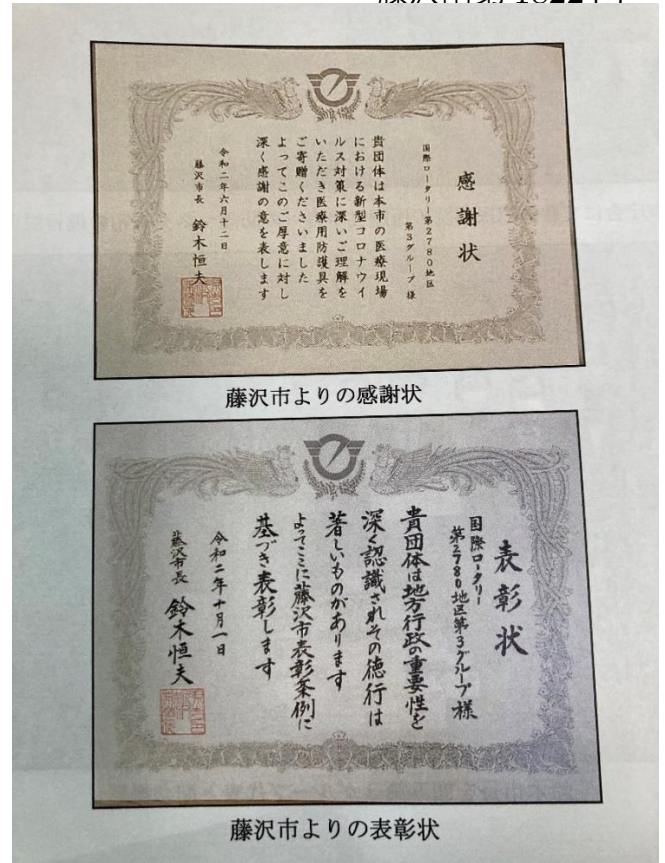 感謝状
国際ロータリー第2780地区
第3グループ 様
貴団体は本市の医療現場
における新型コロナウイ
ルス対策に深いご理解を
いただき医療用防護具を
ご寄贈くださいました
よってこのご厚意に対し
深く感謝の意を表します
令和二年六月十二日
藤沢市長 鈴木恒夫
藤沢市よりの感謝状
表彰状
国際ロータリー
第2780地区第3グループ様
貴団体は地方行政の重要性を
深く認識されその徳行は
著しいものがあります
よってここに藤沢市表彰条例に
基づき表彰します
令和二年十月一日
藤沢市長 鈴木恒夫
藤沢市よりの表彰状